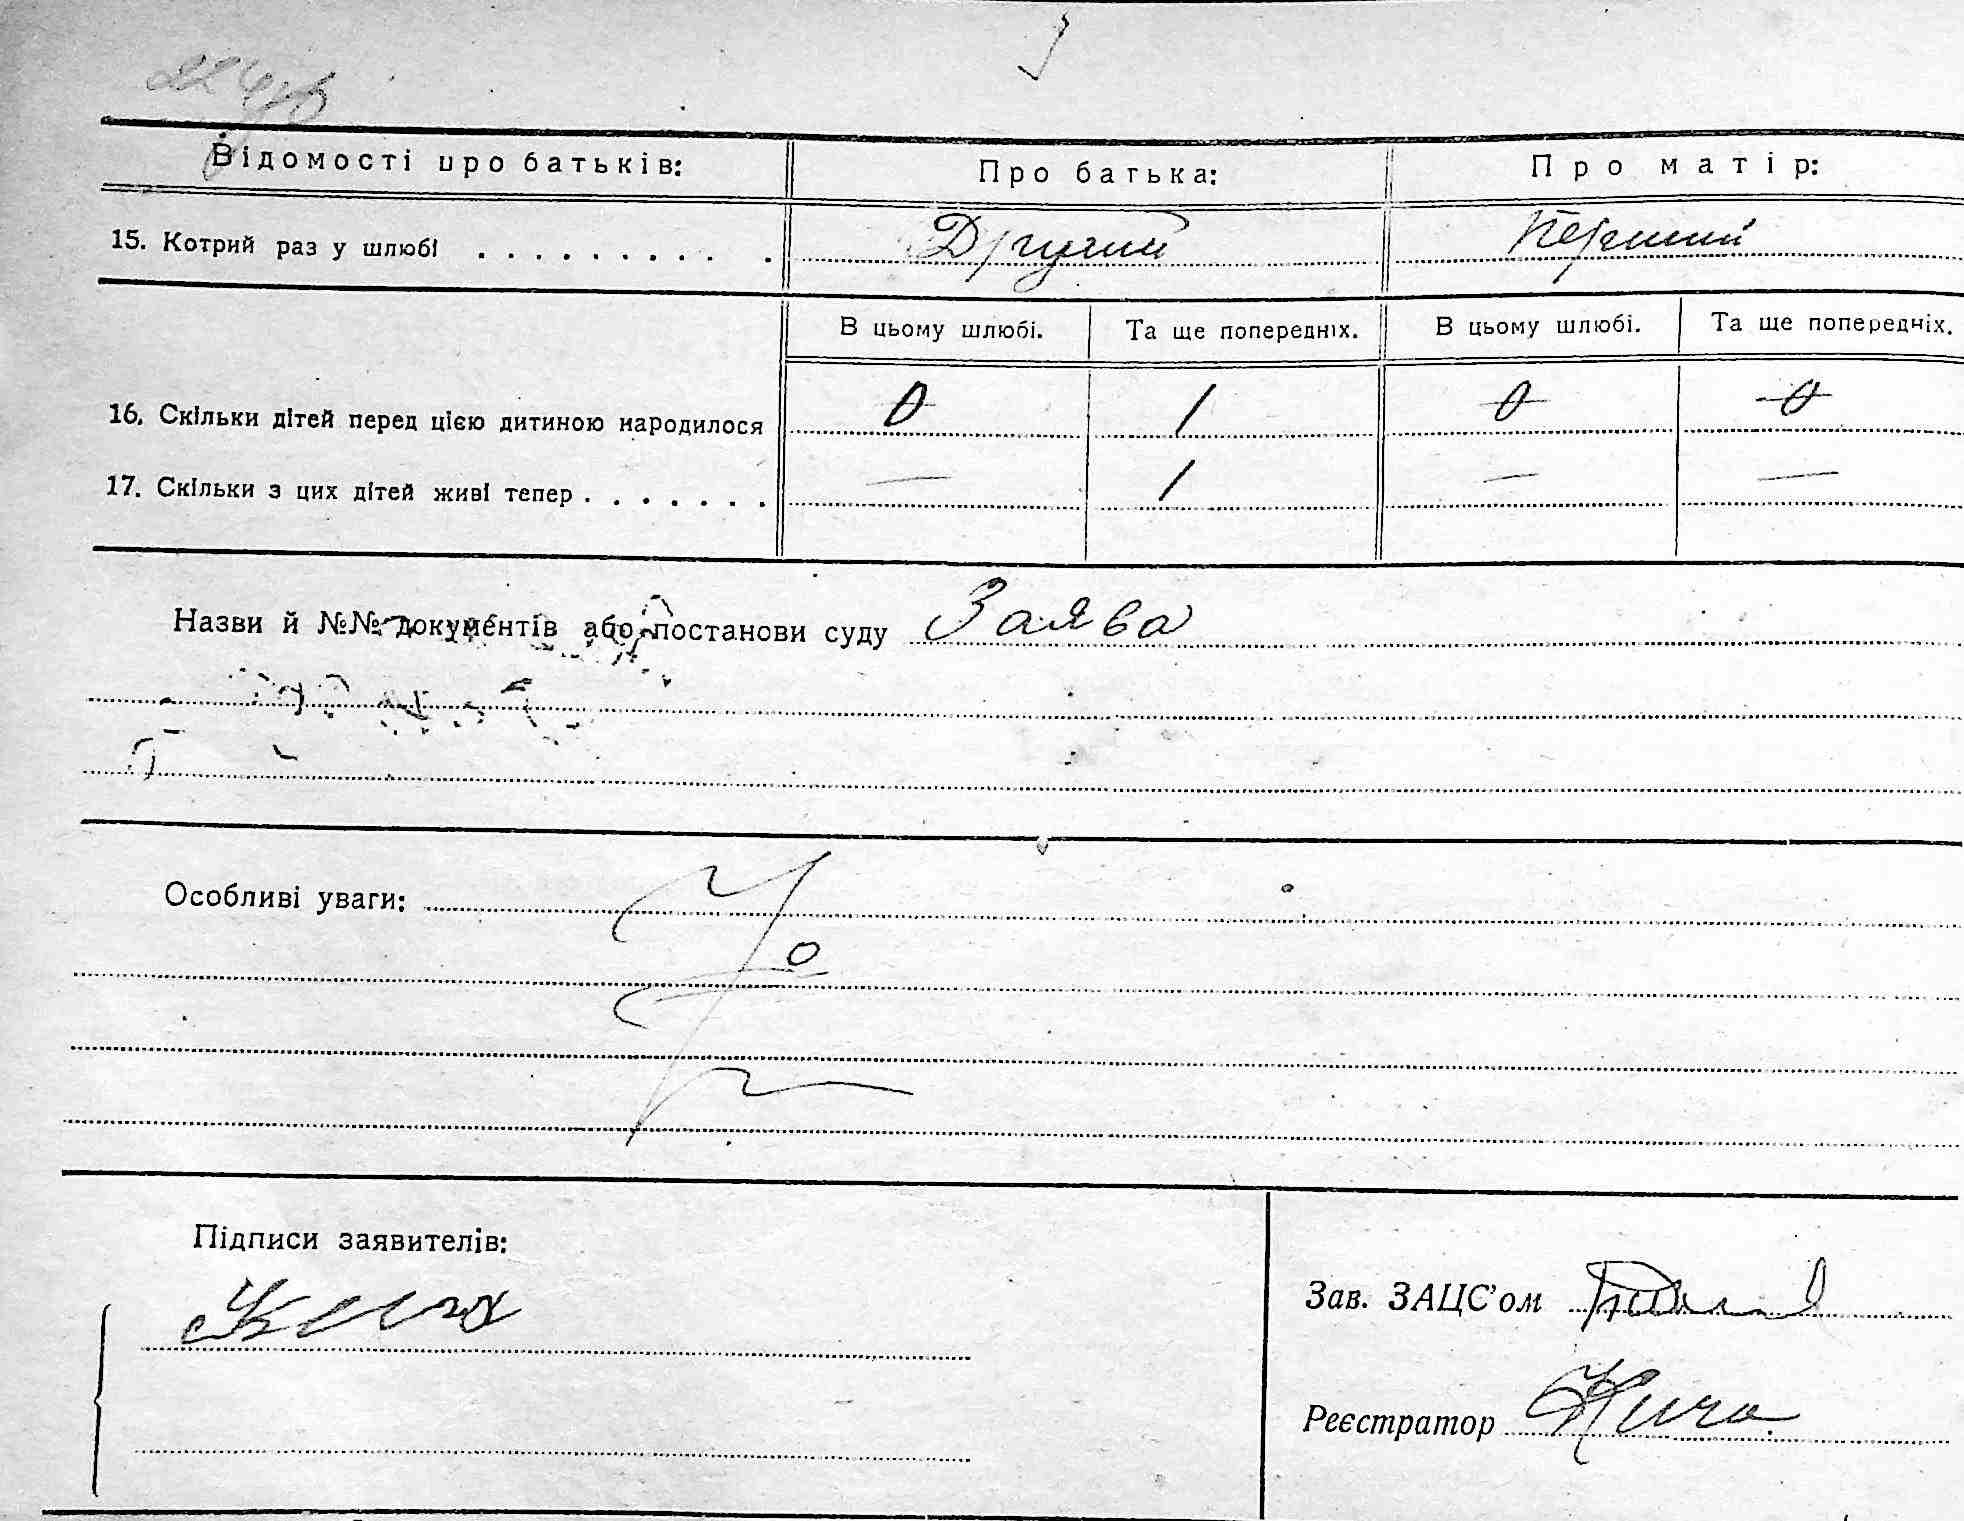 Відомості про батьків: Про батька: Про матір:
15. Котрий раз у шлюбі . . . . . . . . . . Другий Перший
В цьому шлюбі. Та ще попередніх. В цьому шлюбі. Та ще попередніх.
16. Скільки дітей перед цією дитиною народилося 0 1 0 0
17. Скільки з цих дітей живі тепер . . . . . . . — 1 — —
Назви й №№ документів або постанови суду Заява
Особливі уваги:
Підписи заявителів:
Зав. ЗАЦС’ом
Реєстратор